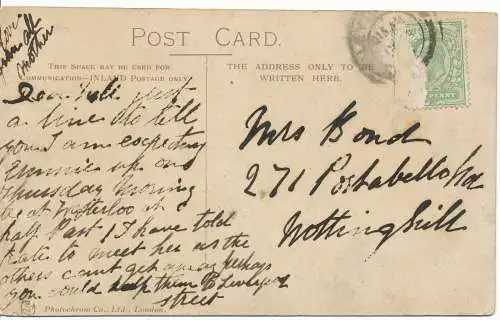 love
from all
another
POST CARD.
THIS SPACE MAY BE USED FOR
COMMUNICATION—INLAND POSTAGE ONLY
THE ADDRESS ONLY TO BE
WRITTEN HERE.
Dear just
a line to tell
you I am expecting
Emmie up on
Thursday morning
be at Waterloo at
half Past 1 I have told
Kate to meet her as the
others cant get away perhaps
you could help them to Liverpool
street
Mrs Bond
271 Portabello Rd
Notting hill
PENNY
Photochrom Co., Ltd., London.